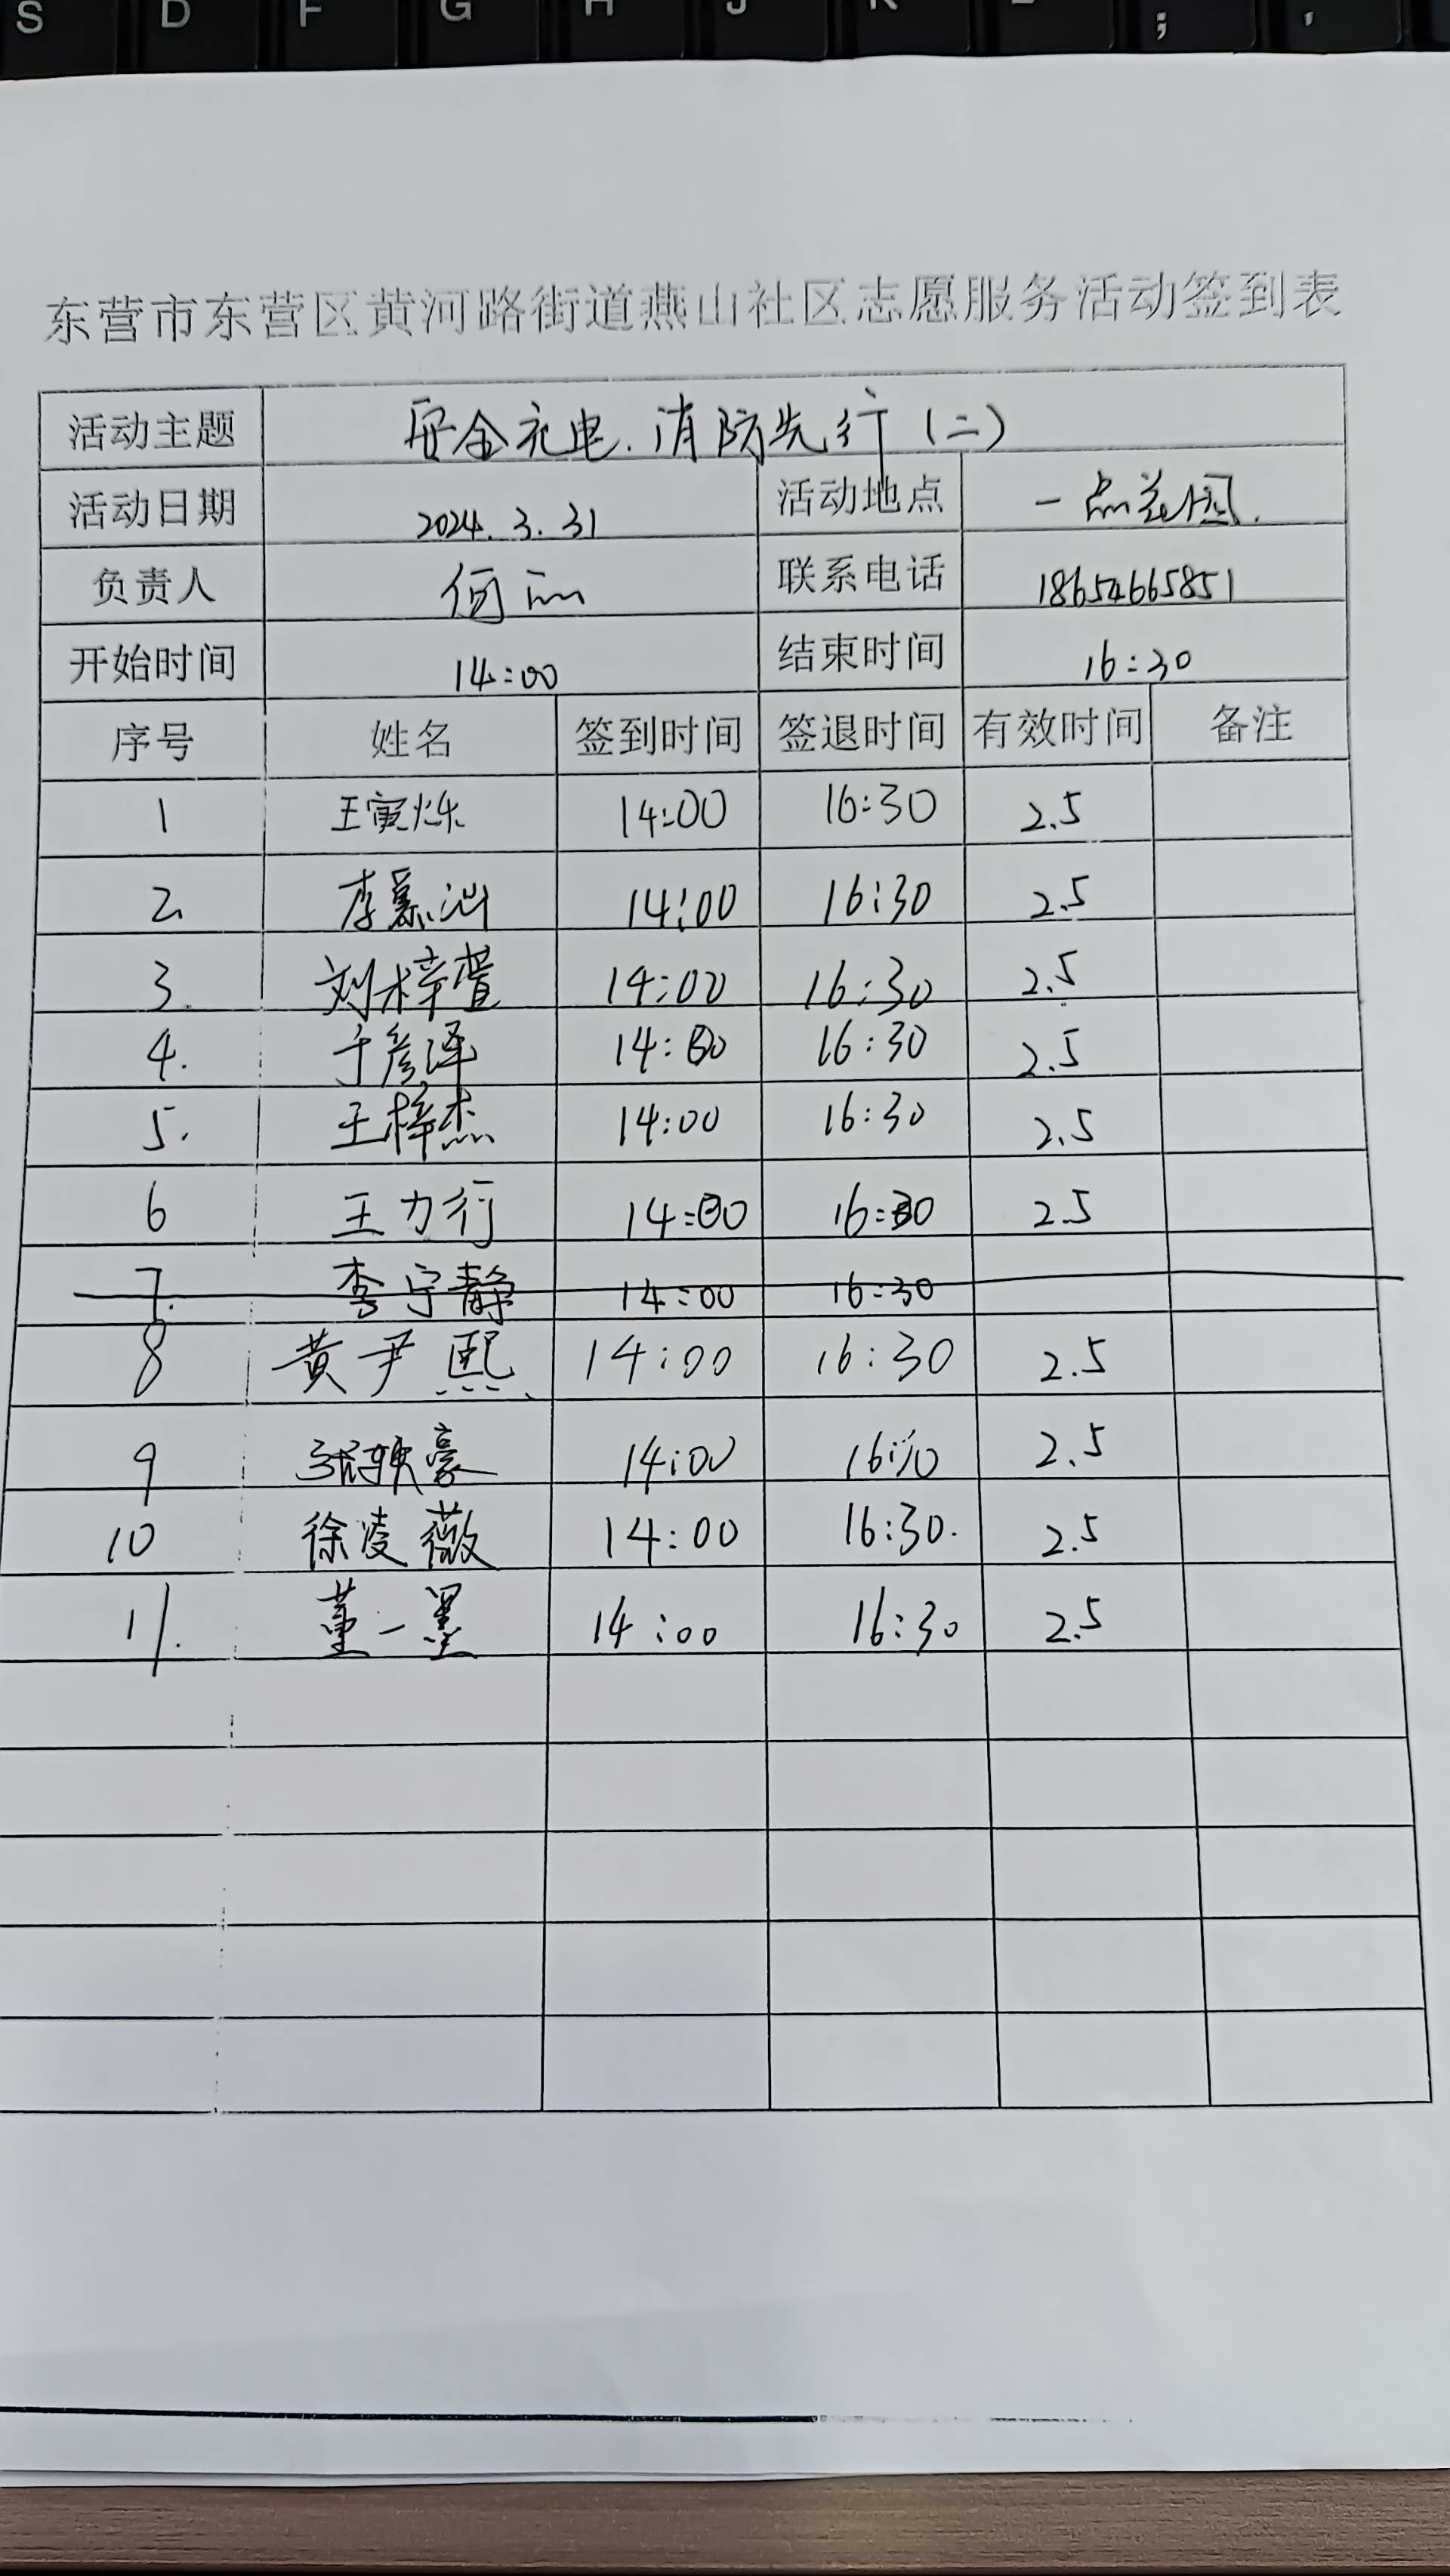 S D F G H J K L ; '
东营市东营区黄河路街道燕山社区志愿服务活动签到表
活动主题 安全充电.消防先行(二)
活动日期 2024.3.31 活动地点 一点花园.
负责人 何 联系电话 18654665851
开始时间 14:00 结束时间 16:30
序号 姓名 签到时间 签退时间 有效时间 备注
1 王寅烁 14:00 16:30 2.5
2 李慕汕 14:00 16:30 2.5
3. 刘梓萱 14:00 16:30 2.5
4. 于彦泽 14:00 16:30 2.5
5. 王梓杰 14:00 16:30 2.5
6 王力行 14:00 16:30 2.5
7. 李宁静 14:00 16:30
8 黄尹熙 14:00 16:30 2.5
9 张轶豪 14:00 2.5
10 徐凌薇 14:00 16:30. 2.5
11. 董一墨 14:00 16:30 2.5